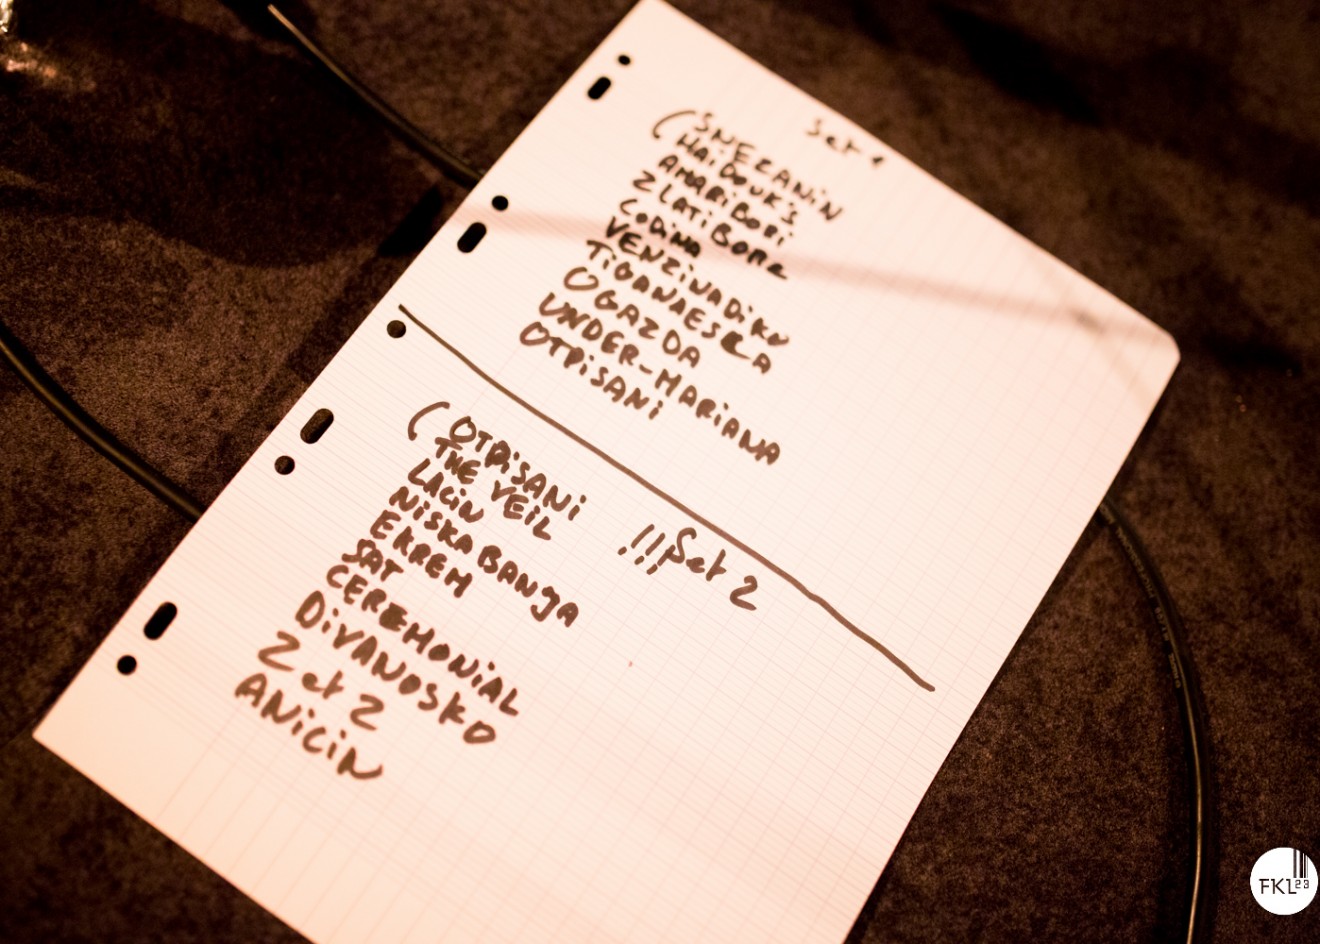 Set 1
( SNEZANiN
HAiDOUK'S
AMARiBORi
ZLATiBORE
CODiNA
VENZiNADiKO
TiGANAESRA
OGAZDA
UNDER-MARiANA
OTPiSANi
!!! Set 2
( OTPiSANi
THE VEiL
LACiN
NiSKA BANJA
EKREM
SAT
CEREMONiAL
DiVANOSKO
2 et 2
ANiCiN
FKL23